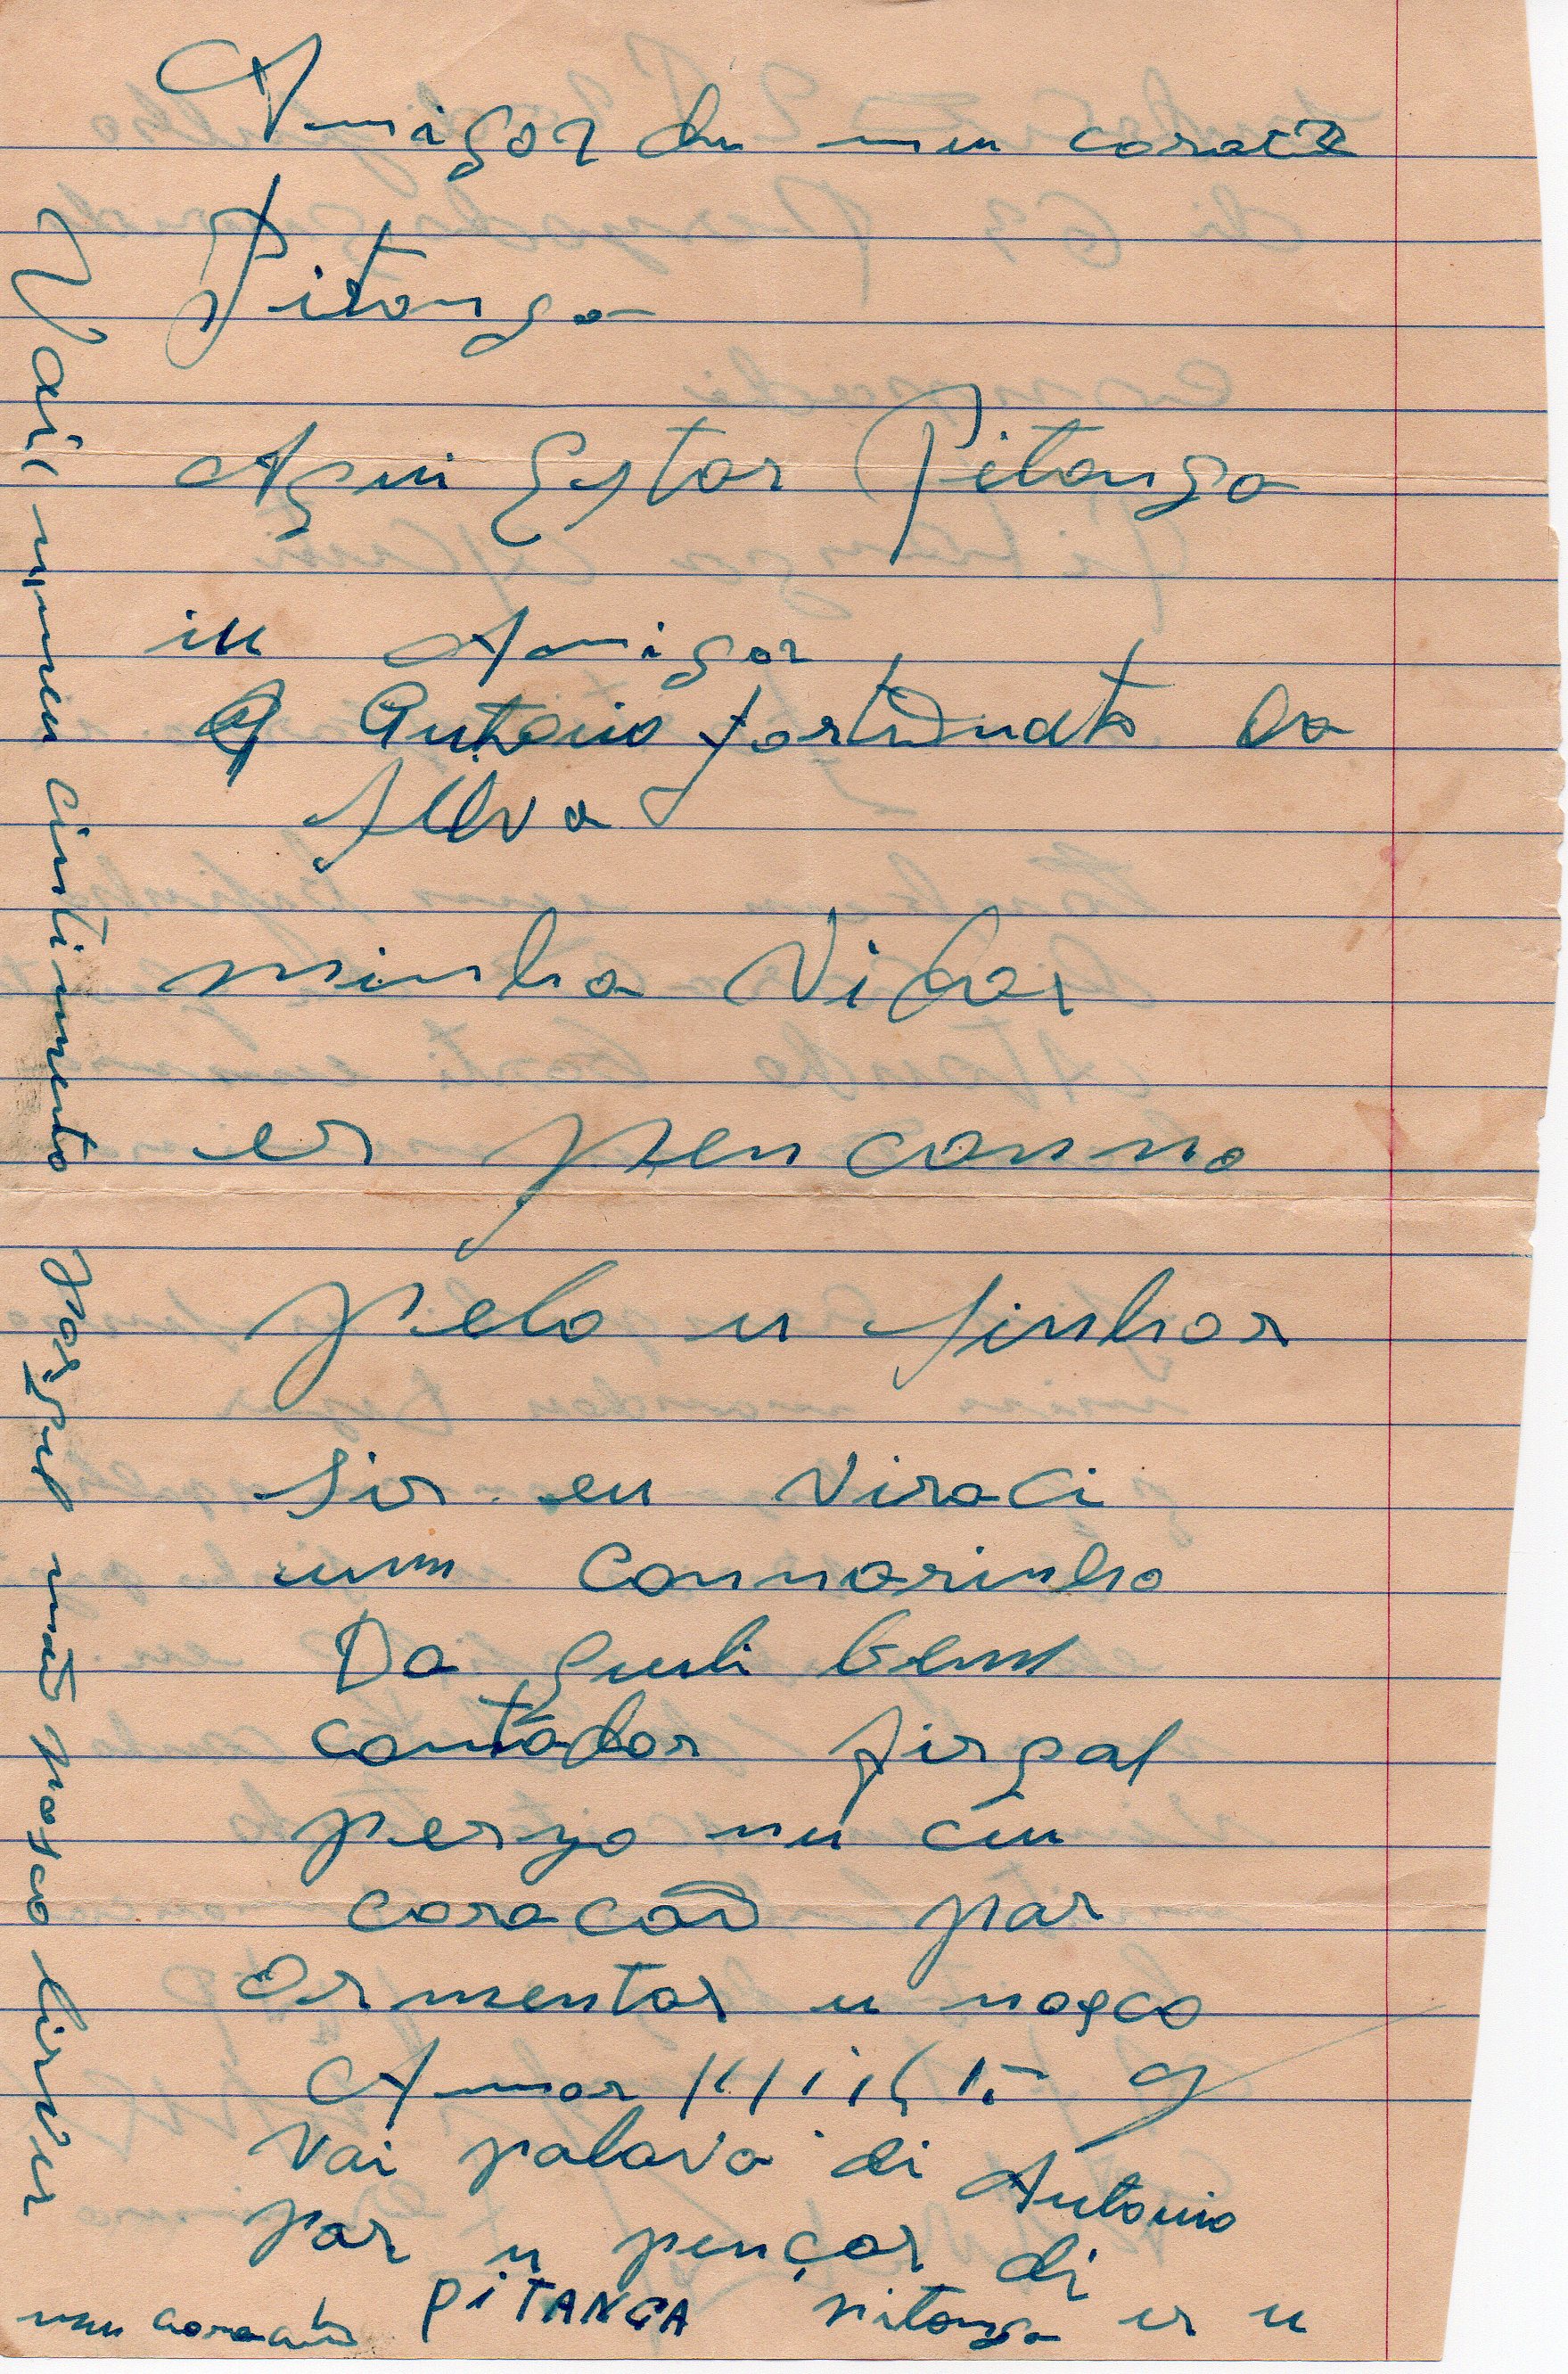 Amigor du meu coracã
Pitanga
Aqui Estar Pitanga
iu Amigor
Antonio fortunato da
Silva
minha Vidar
er pencanno
pelo u sinhor
Sir eu Viraci
umm cannarinho
Da queli bem
contador firpal
perzo nu ciu
coracaõ par
Ormentar u nosco
Amor
Vai palava di Antonio
par u pençar di
PiTANGA pitanga er u
meu coracaõ
Vaiii umeu cintimento porque naõ posco lirver